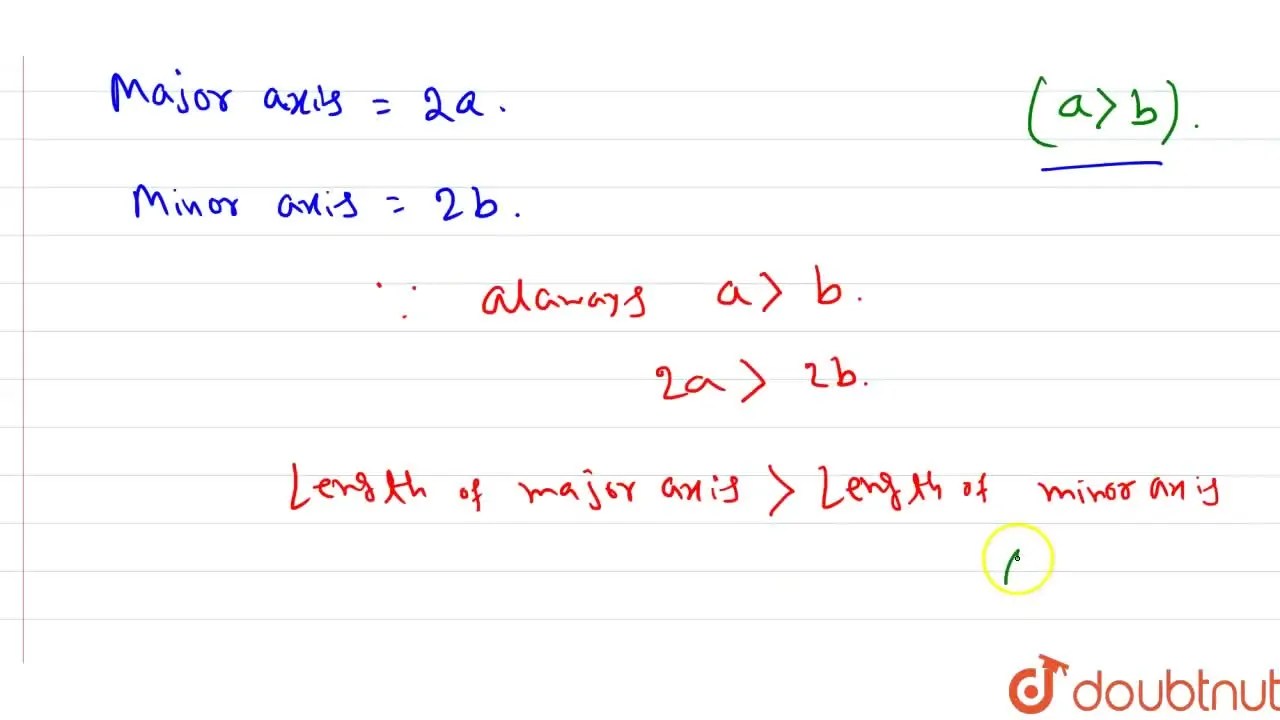 Major axis = 2a.
(a > b).
Minor axis = 2b.
∵ alaways a > b.
2a > 2b.
Length of major axis > Length of minor axis
doubtnut